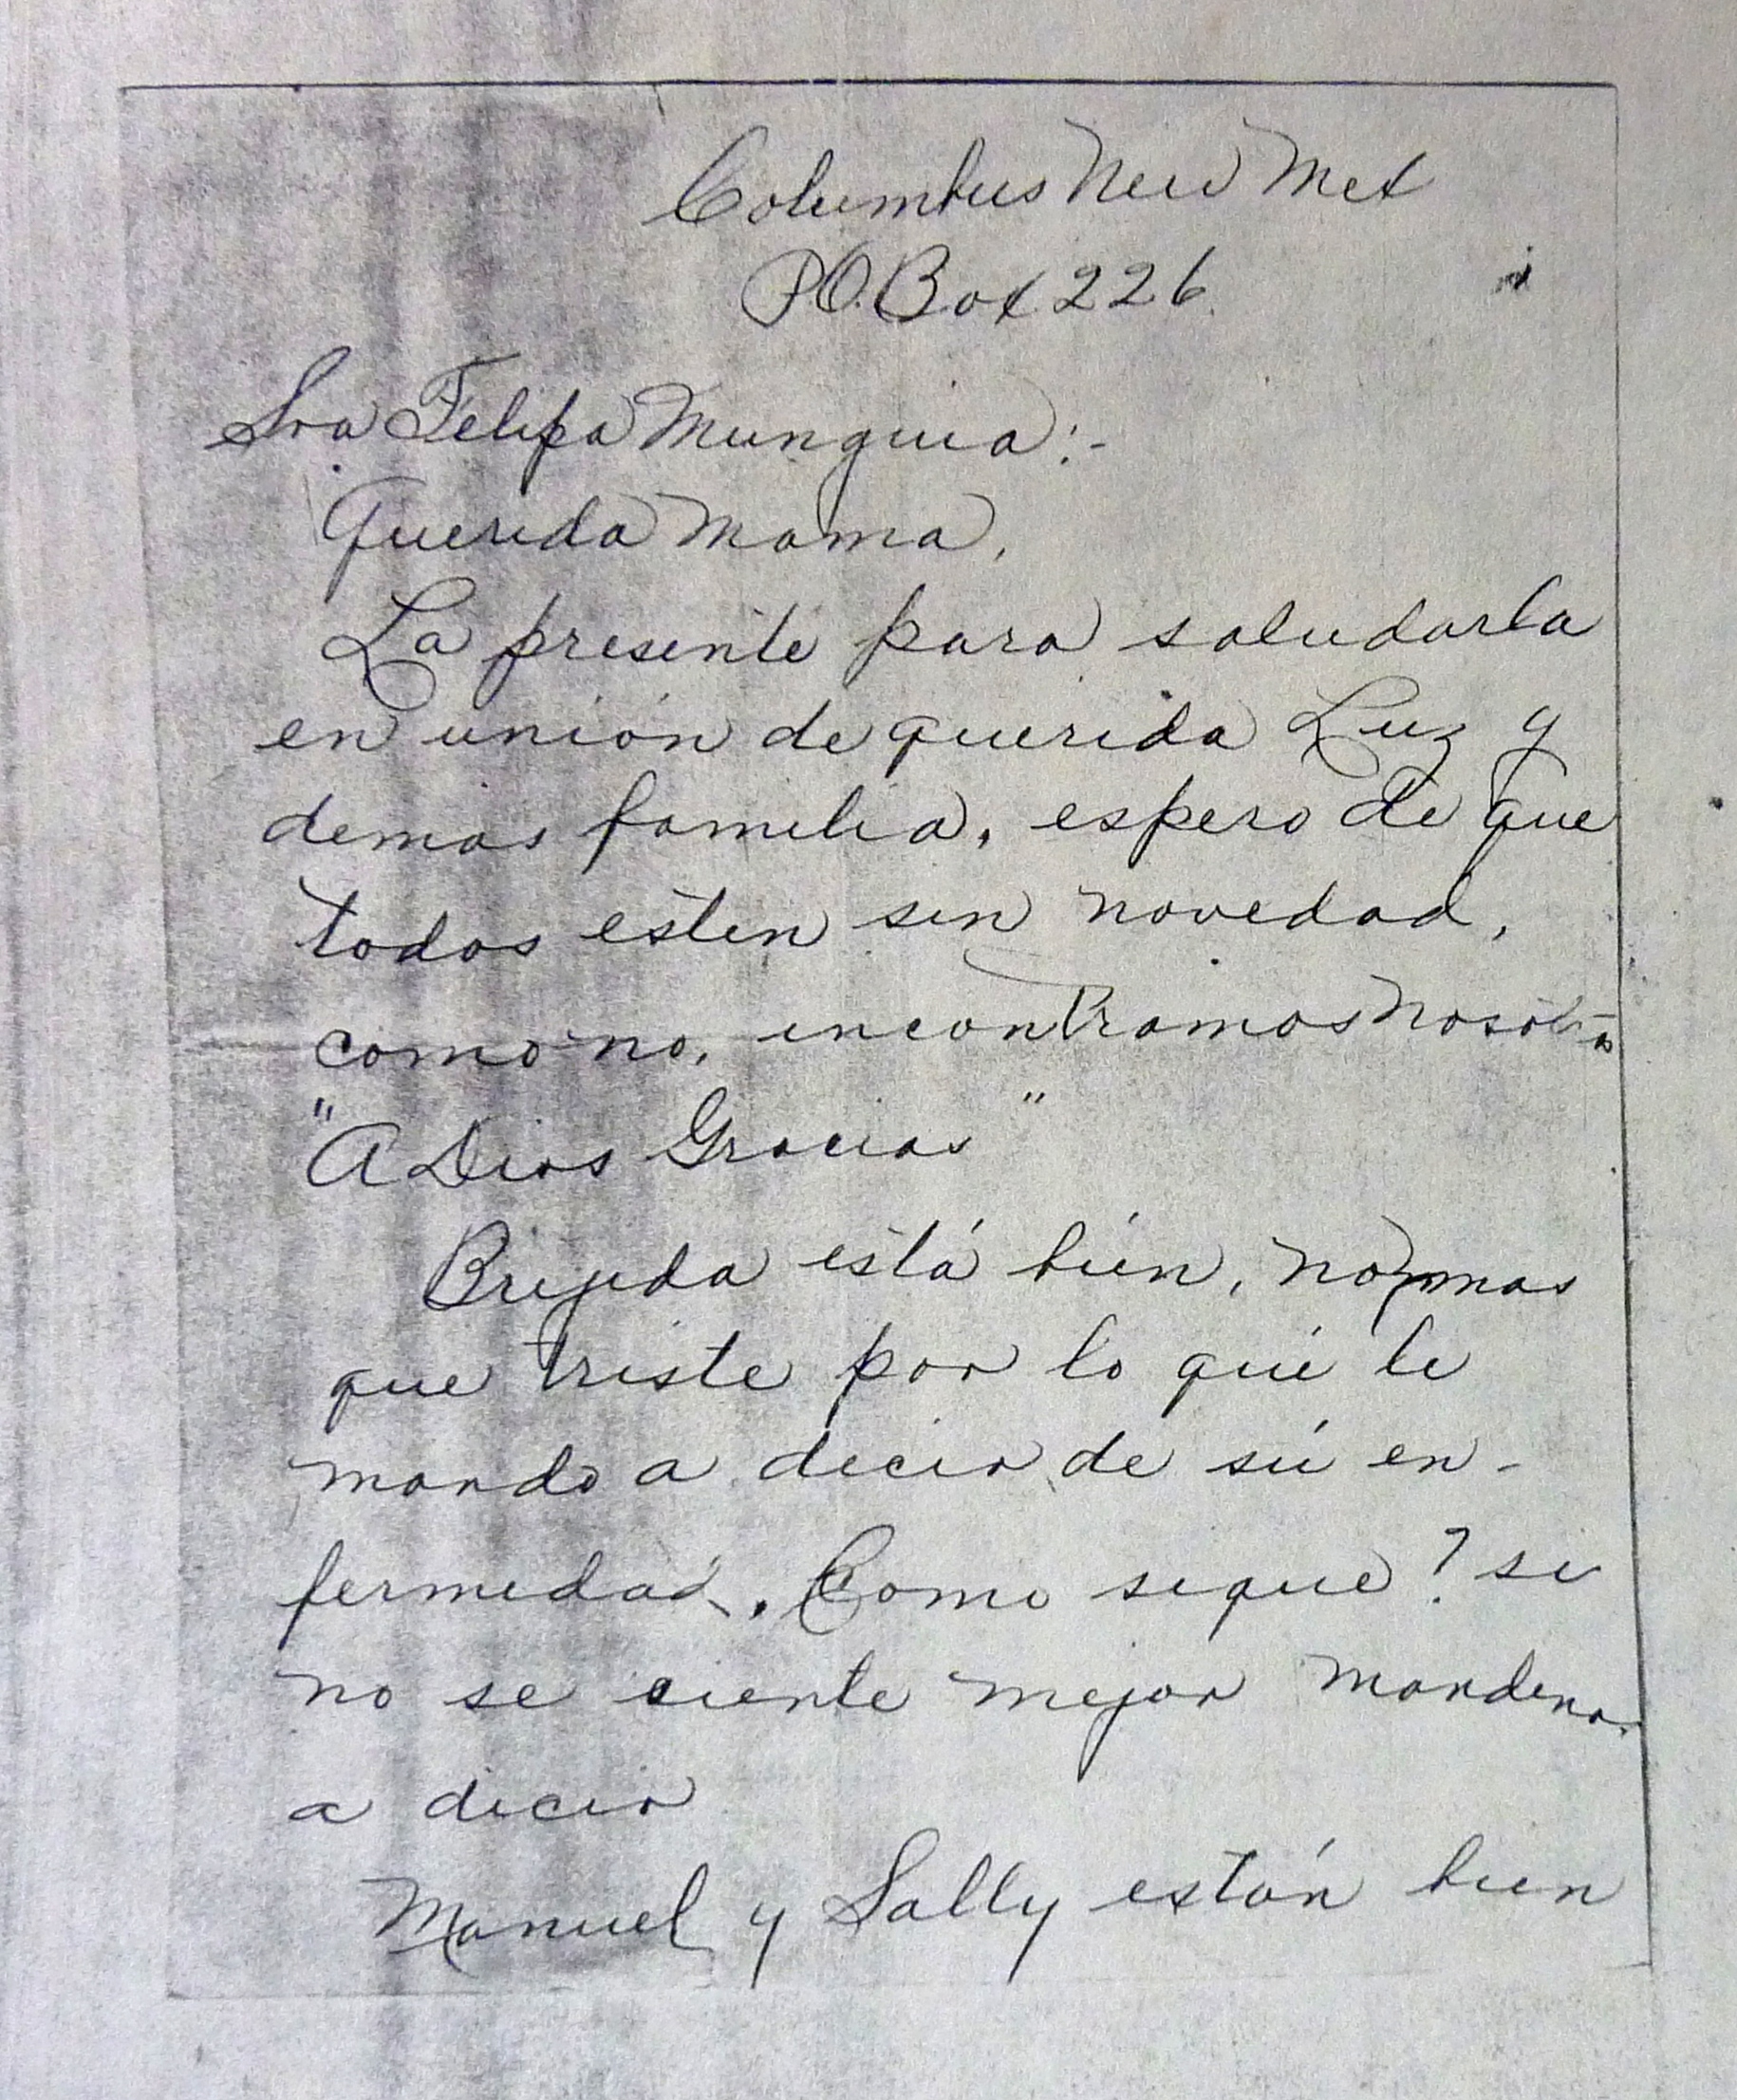 Columbus New Mex
P.O. Box 226.
Sra Felipa Munguia:-
Querida Mama,
La presente para saludarla
en unión de querida Luz y
demas familia, espero de que
todos esten sin novedad,
como no, encontramos nosotros
"A Dios Gracias"
Brijida está bién, no mas
que triste por lo qué le
mando a decir de sú en-
fermedad. Como sigue? si
no se ciente mejor mandenos
a decir
Manuel y Sally están bien